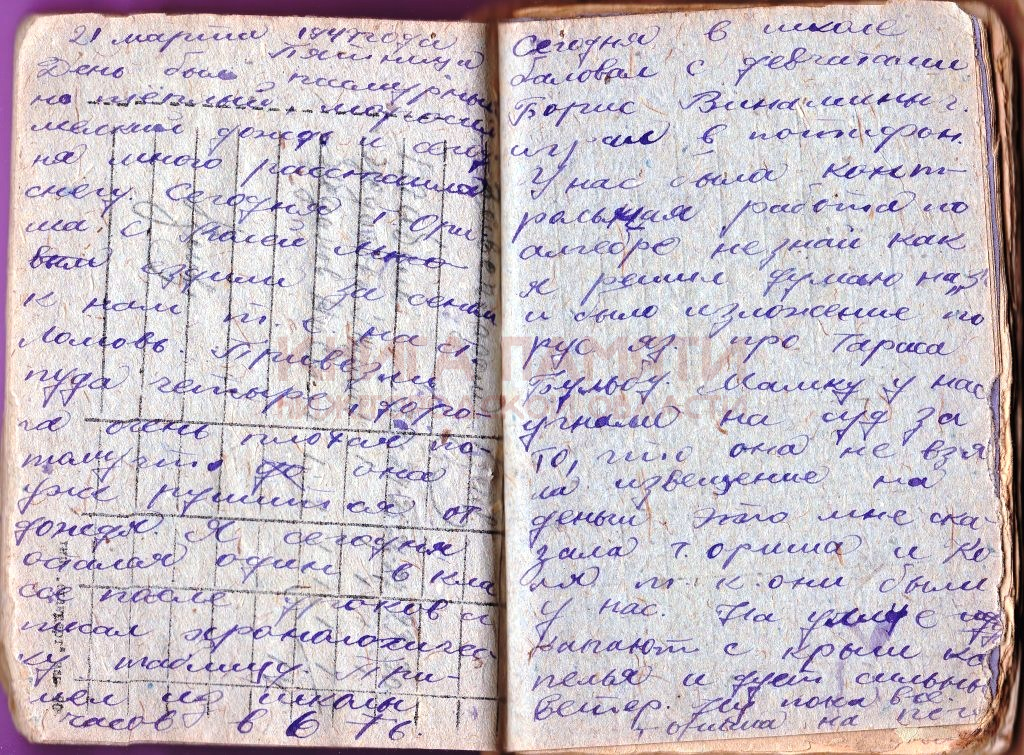 21 марта 1947 года
Пятница
День был пасмурный
но тёплый, моросил
мелкий дождь и сего
на много растаяла
снегу. Сегодня т. Ори
ша с Колей
были ездили за сеном
к нам т. е. на ст.
Ломовь. Привезли
пуда четыре, доро-
га очень плохая по-
тому что она
уже рушится от
дождя. Я сегодня
остался один в кла
се после уроков и
писал хронологичес
ку таблицу. При-
шел из школы
часов в 6 7 в.
Сегодня в школе
баловал с девчатами
Борис Винаминыч.
играл в потифон.
У нас была конт-
рольная работа по
алгебре не знай как
я решил думаю на „3"
и было изложение по
рус яз. про Тараса
Бульбу. Мамку у нас
угнали на суд за
то, что она не взя
ла извещение на
деньги это мне ска-
зала т. ориша и Ко
ля т. к. они были
у нас. На улице
капают с крыш ка
пелья и дует сильны
ветер. Ну пока все
на
КНИГА ПАМЯТИ